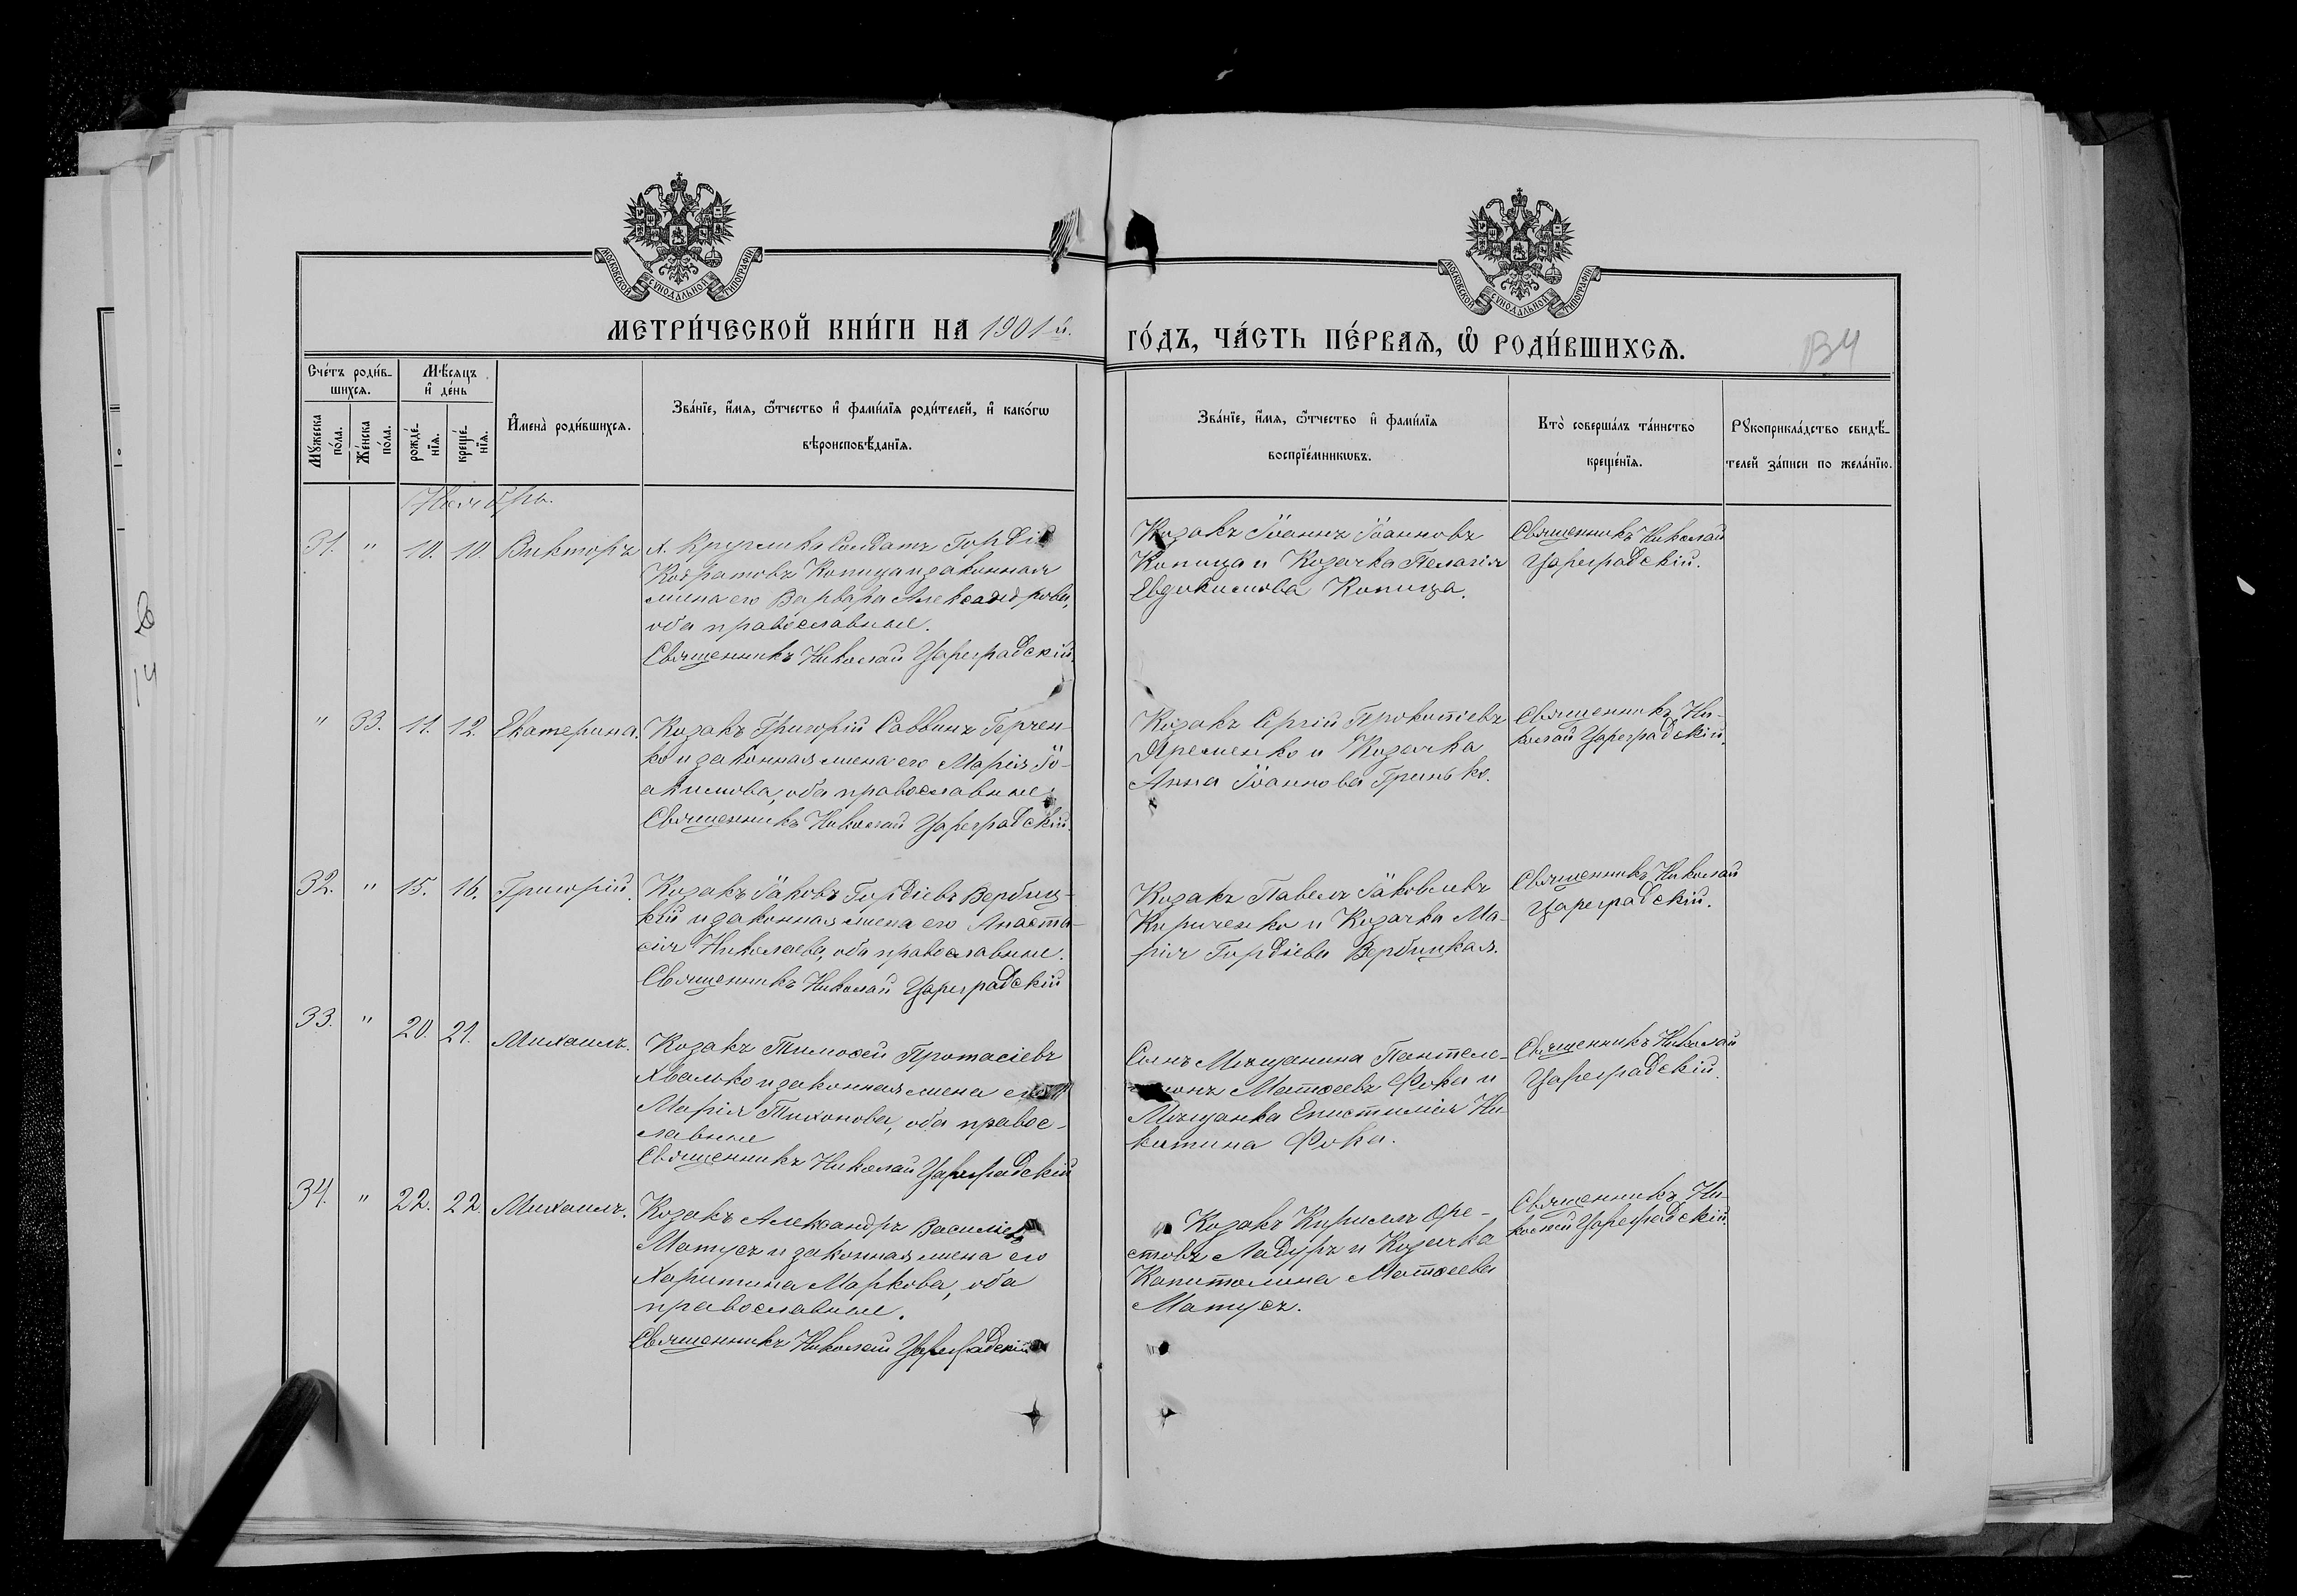 МОСКОВСКОЙ СѴНОДАЛЬНОЙ ТИПОГРАФІИ
МОСКОВСКОЙ СѴНОДАЛЬНОЙ ТИПОГРАФІИ
МЕТРИ́ЧЕСКОЙ КНИ́ГИ НА 1901 й.
ГО́ДЪ, ЧА́СТЬ ПЕ́РВАѦ, Ѽ РОДИ́ВШИХСѦ.
Сче́тъ роди́в-
шихсѧ.
Мꙋжеска по́ла.
Же́нска по́ла.
Мѣ́сѧцъ
и҆ де́нь
рожде́-
нїѧ.
креще́-
нїѧ.
И҆мена̀ роди́вшихсѧ.
Зва́нїе, и҆́мѧ, ѻ҆́тчество и҆ фами́лїѧ роди́телей, и҆ како́гѡ
вѣроисповѣ́данїѧ.
Зва́нїе, и҆́мѧ, ѻ҆́тчество и҆ фами́лїѧ
воспрїе́мникѡвъ.
Кто̀ соверша́лъ та́инство
креще́нїѧ.
Рꙋкоприкла́дство свидѣ́-
телей за́писи по жела́нїю.
Ноябрь.
31. " 10. 10. Викторъ
х. Кругликъ Солдатъ Гордій
Кодратовъ Копица и законная
жена его Варвара Александрова,
оба православные.
Священникъ Николай Цареградскій.
Козакъ Іоаннъ Іоанновъ
Копица и Козачка Пелагія
Евдокимова Копица.
Священникъ Николай
Цареградскій.
" 33. 11. 12. Екатерина.
Козакъ Григорій Саввинъ Герчен-
ко и законная жена его Марія Іо-
акимова, оба православные
Священникъ Николай Цареградскій.
Козакъ Сергій Прокопіевъ
Яременко и Козачка
Анна Іоаннова Гринько.
Священникъ Ни-
колай Цареградскій.
32. " 15. 16. Григорій.
Козакъ Іаковъ Гордіевъ Вербиц-
кій и законная жена его Анаста-
сія Николаева, оба православные.
Священникъ Николай Цареградскій
Козакъ Павелъ Іаковлевъ
Кириченко и Козачка Ма-
рія Гордіева Вербицкая.
Священникъ Николай
Цареградскій.
33. " 20. 21. Михаилъ.
Козакъ Тимоѳей Протасіевъ
Хвалько и законная жена его
Марія Тихонова, оба правос-
лавные
Священникъ Николай Цареградскій
Сынъ Мѣщанина Пантеле-
Матѳеевъ Фока и
Мѣщанка Епистимія Ни-
китина Фока.
Священникъ Николай
Цареградскій.
34. " 22. 22. Михаилъ.
Козакъ Александръ Василіевъ
Матусъ и законная жена его
Харитина Маркова, оба
православные.
Священникъ Николай Цареградскій
Козакъ Кириллъ Оре-
стовъ Ладуръ и Козачка
Капитолина Матѳеева
Матусъ.
Священникъ Ни-
колай Цареградскій.